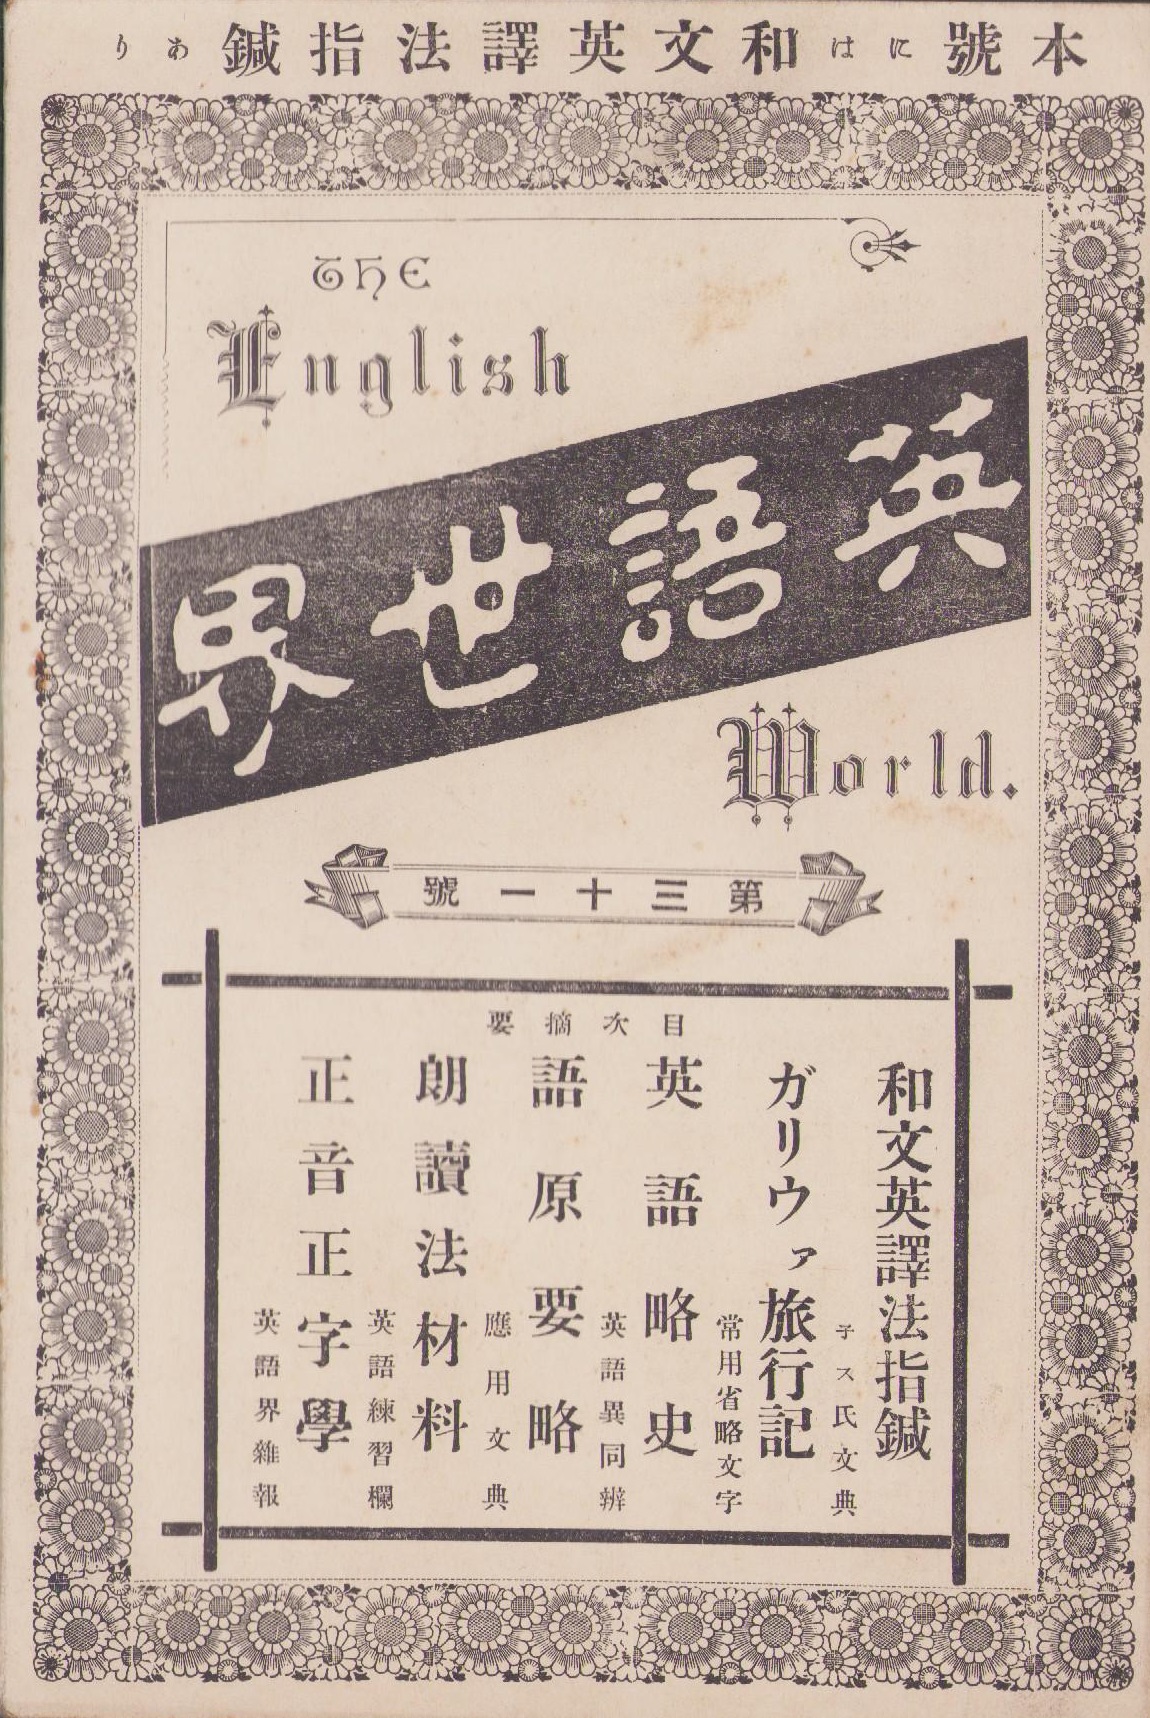 本號には和文英譯法指鍼あり
THE
English
英語世界
World.
第三十一號
目次摘要
和文英譯法指鍼
子ス氏文典
ガリウァ旅行記
常用省略文字
英語略史
英語異同辨
語原要略
應用文典
朗讀法材料
英語練習欄
正音正字學
英語界雜報